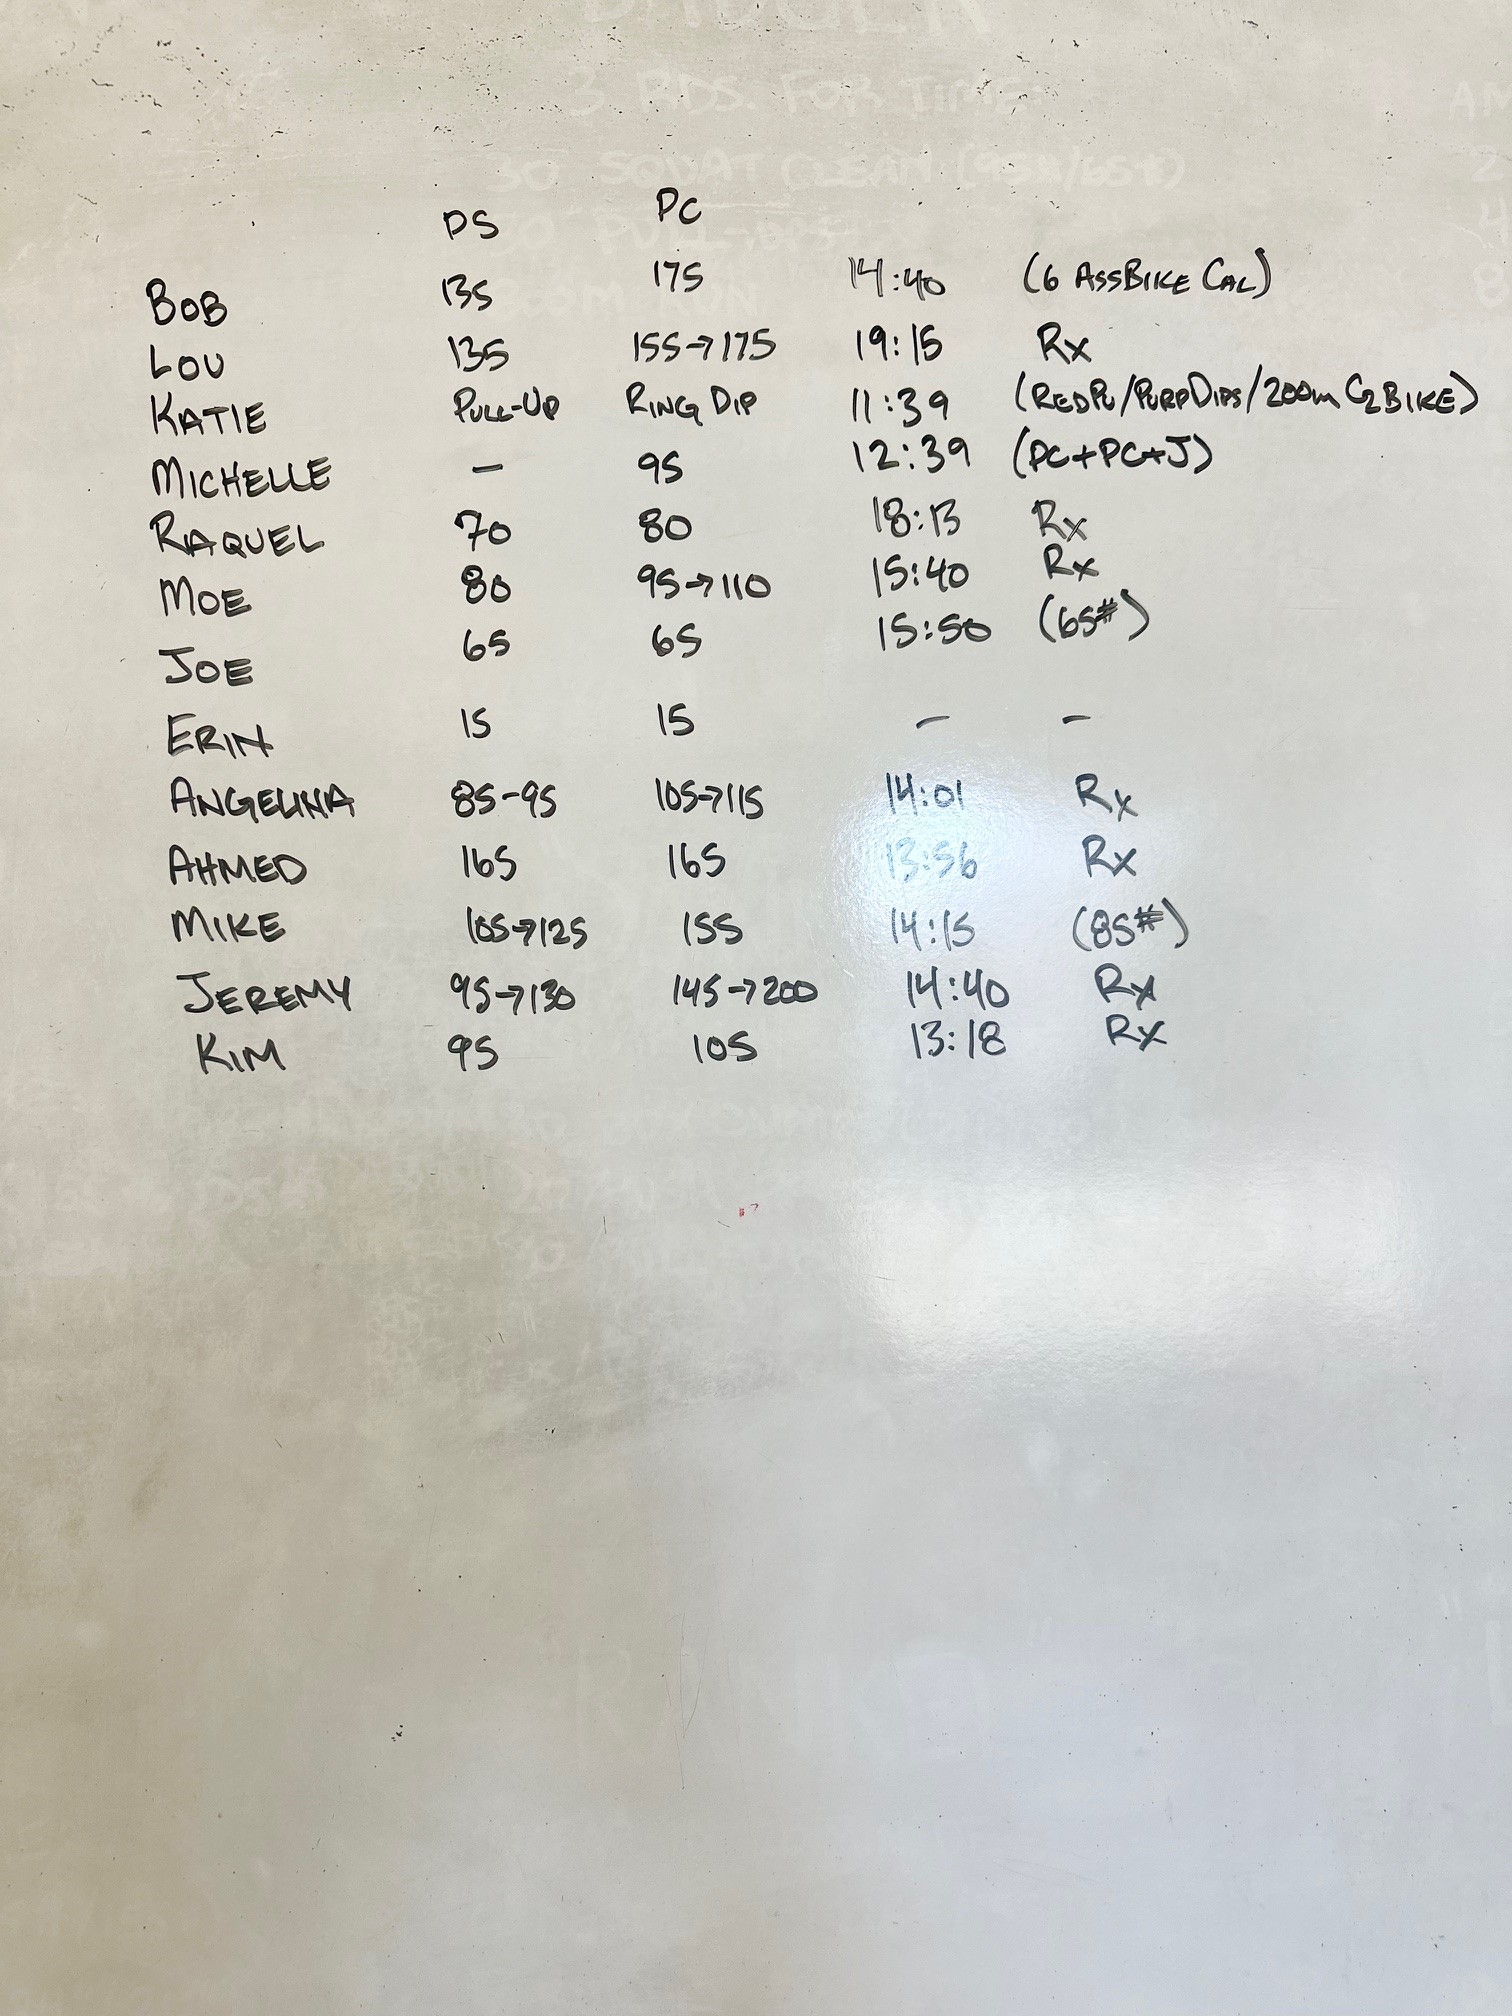 3 RDS. FOR TIME
30 SQUAT CLEAN (95#/65#)
PS PC
BOB 135 175 14:40 (6 ASSBIKE CAL)
LOU 135 155→175 19:15 Rx
KATIE PULL-UP RING DIP 11:39 (RED PU/PURP DIPS/200m C2 BIKE)
MICHELLE — 95 12:39 (PC+PC+J)
RAQUEL 70 80 18:13 Rx
MOE 80 95→110 15:40 Rx
JOE 65 65 15:50 (65#)
ERIN 15 15 — —
ANGELINA 85-95 105→115 14:01 Rx
AHMED 165 165 13:56 Rx
MIKE 105→125 155 14:15 (85#)
JEREMY 95→130 145→200 14:40 Rx
KIM 95 105 13:18 Rx